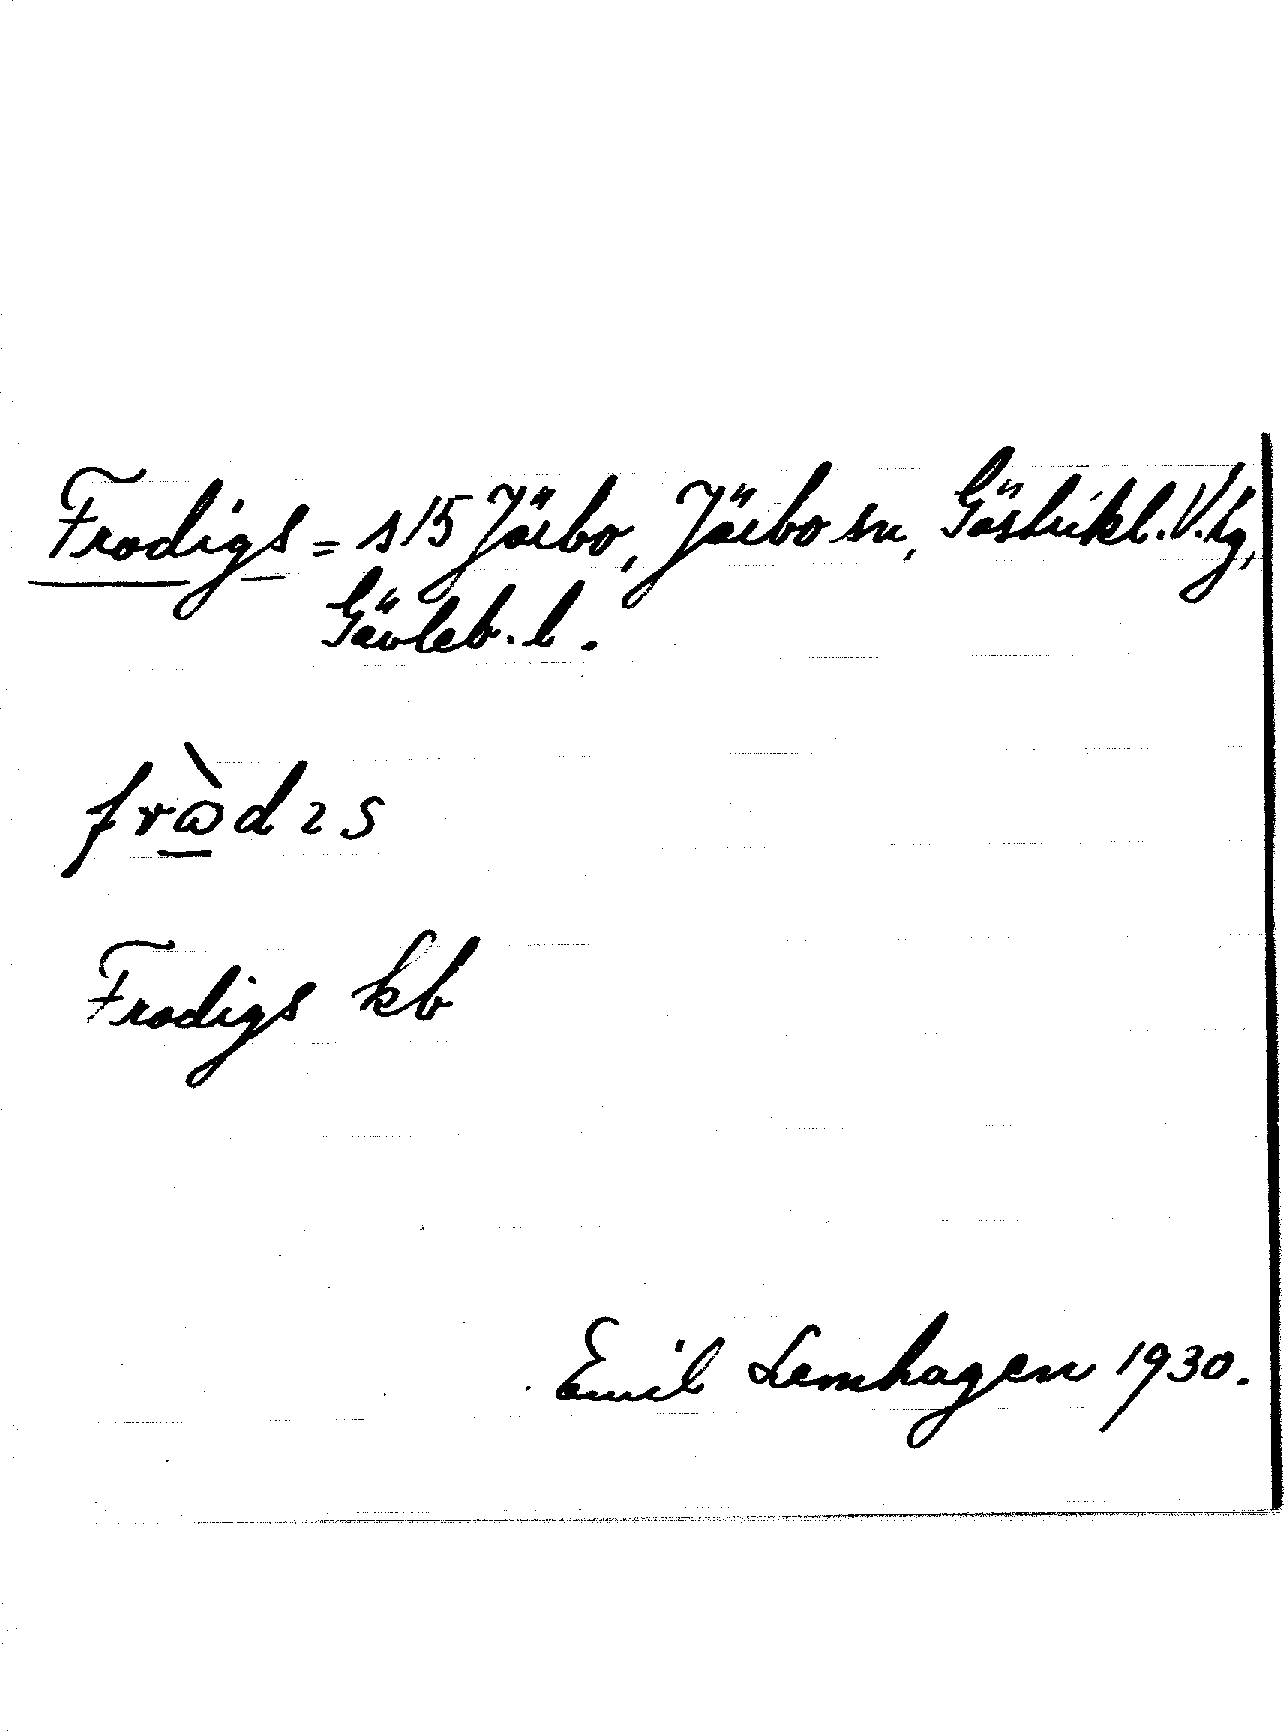 Frodigs = s15 Järbo, Järbo sn, Gästrikl. V. tg,
Gävleb. l.
frὼdıs
Frodigs kb
Emil Lemhagen 1930.